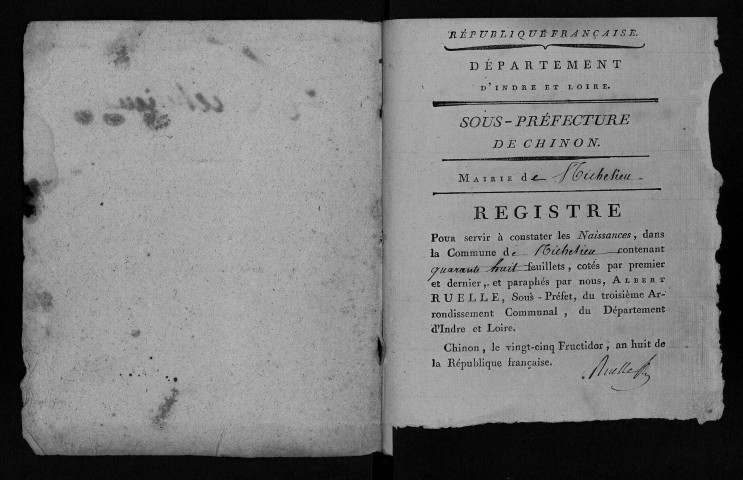 RÉPUBLIQUE FRANÇAISE.
DÉPARTEMENT
D'INDRE ET LOIRE.
SOUS-PRÉFECTURE
DE CHINON.
MAIRIE de Richelieu
REGISTRE
POUR servir à constater les Naissances, dans
la Commune de Richelieu contenant
quarante huit feuillets, cotés par premier
et dernier, et paraphés par nous, ALBERT
RUELLE, Sous-Préfet, du troisième Ar-
rondissement Communal, du Département
d'Indre et Loire.
Chinon, le vingt-cinq Fructidor, an huit de
la République française.
Ruelle